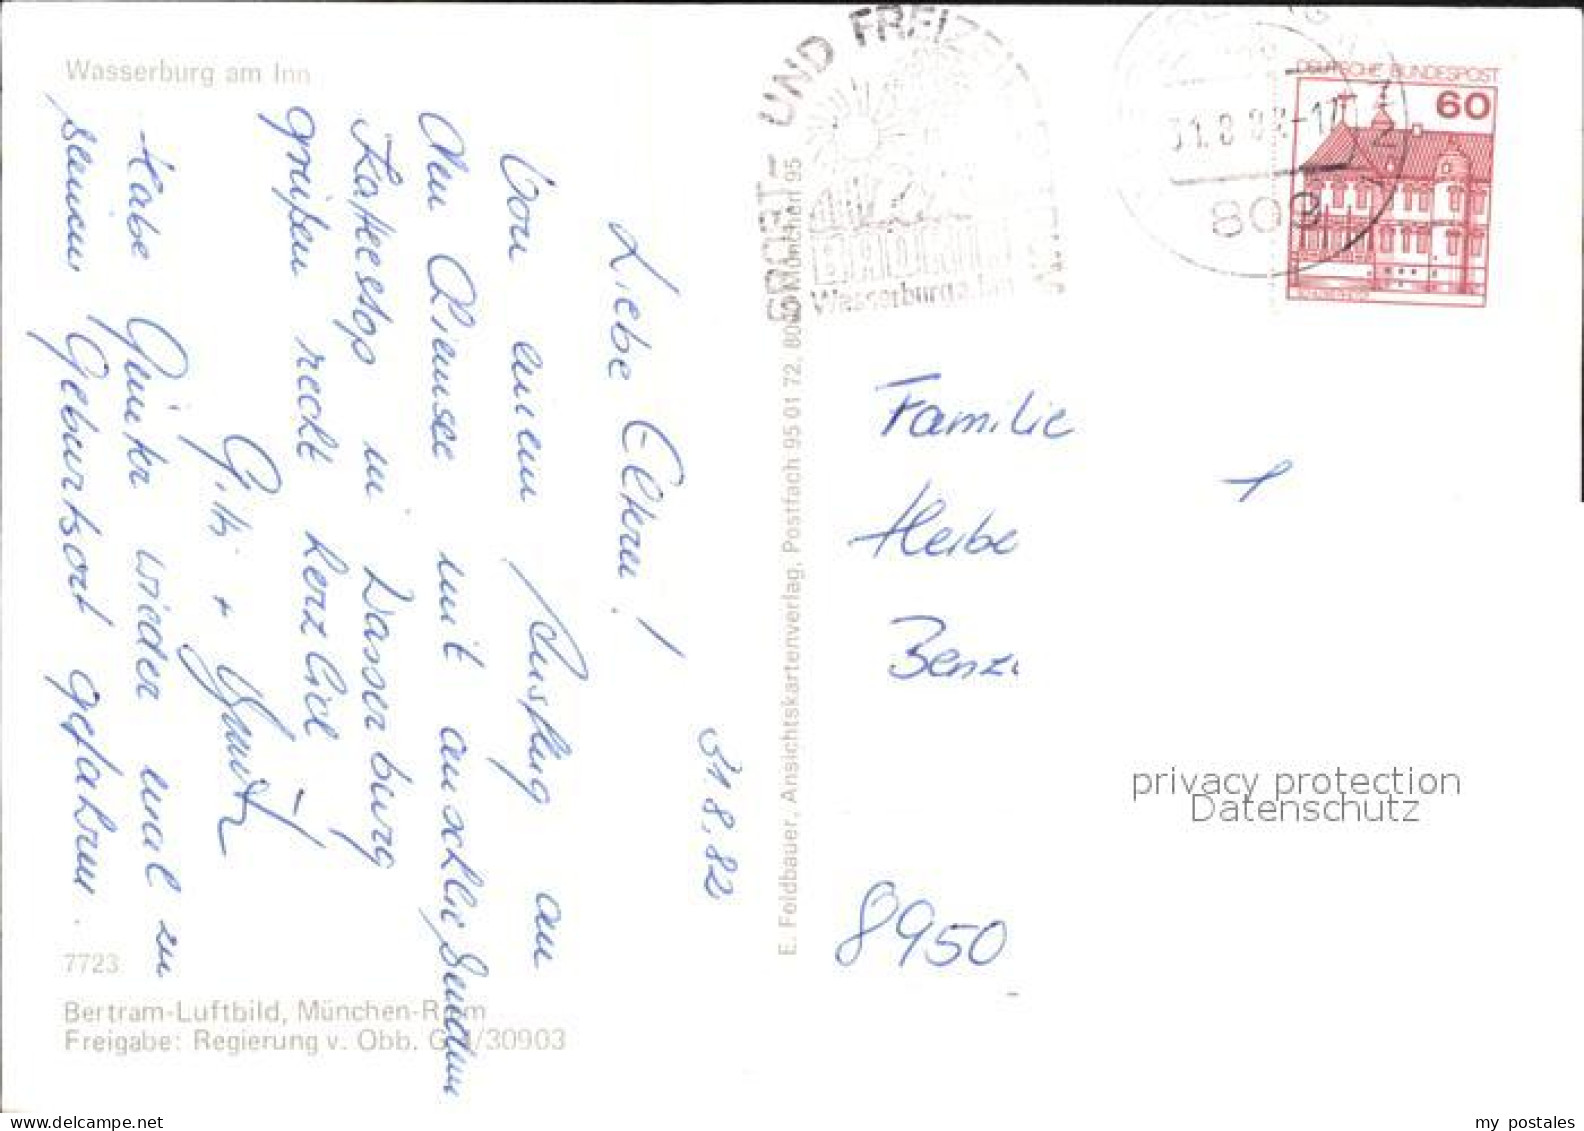 Wasserburg am Inn
31.8.82
Liebe Eltern!
Von einem Ausflug an
den Chiemsee mit anschließendem
Kaffeestop in Wasserburg
grüßen recht herzlich
Gitti + Günter
Habe Günter wieder mal zu
seinem Geburtsort gefahren.
7723
Bertram-Luftbild, München-Riem
Freigabe: Regierung v. Obb. G 4/30903
E. Feldbauer, Ansichtskartenverlag, Postfach 95 01 72, 8000 München 95
SPORT- UND FREIZEIT
Wasserburg a. Inn
31.8.82-17
809
DEUTSCHE BUNDESPOST
60
Familie
Herbe
Benz
8950
privacy protection
Datenschutz
my postales